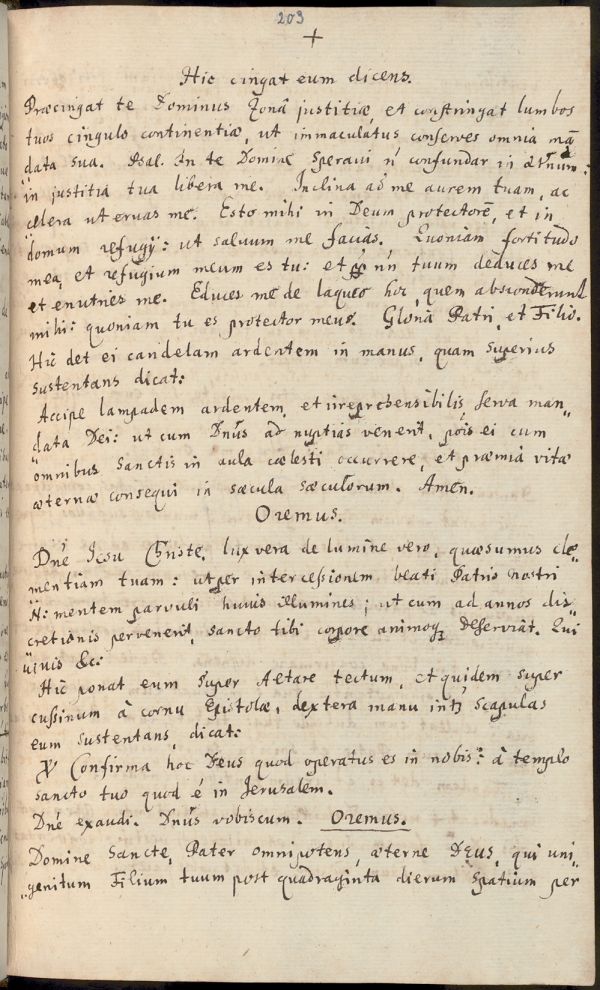 203
+
Hic cingat eum dicens.
Præcingat te Dominus Zonâ justitiæ, et constringat lumbos
tuos cingulo continentiæ, ut immaculatus conserves omnia mã
data sua. Psal. In te Domine speravi ń confundar in ætnum:
in justitia tua libera me. Inclina ad me aurem tuam, ac
celera ut eruas me. Esto mihi in Deum protectorẽ, et in
domum refugÿ: ut salvum me facias. Quoniam fortitudo
mea, et refugium meum es tu: et nń tuum deduces me
et enutries me. Educes me de laqueo hoc, quem absconderunt
mihi: quoniam tu es protector meus. Gloria Patri, et Filio.
Hic det ei candelam ardentem in manus, quam superius
sustentans dicat:
Accipe lampadem ardentem, et irreprehensibilis, serva man„
„data Dei: ut cum Dnũs ad nuptias venerit, pois ei cum
omnibus Sanctis in aula cælesti occurrere, et præmia vitæ
æternæ consequi in sæcula sæculorum. Amen.
Oremus.
Dnẽ Iesu Christe, lux vera de lumine vero, quæsumus cle„
mentiam tuam: ut per intercessionem beati Patris nostri
N: mentem parvuli huius illumines; ut cum ad annos dis„
cretionis pervenerit, sancto tibi corpore animoq₃ deserviat. Qui
vivis &c:
Hic ponat eum super Altare tectum, et quidem super
cussinum à cornu Epistolæ, dextera manu intj scapulas
eum sustentans, dicat:
℣ Confirma hoc Deus quod operatus es in nobis: à templo
sancto tuo quod é in Jerusalem.
Dnẽ exaudi. Dnũs vobiscum. Oremus.
Domine Sancte, Pater omnipotens, æterne Deus, qui uni„
„genitum Filium tuum post quadraginta dierum spatium per